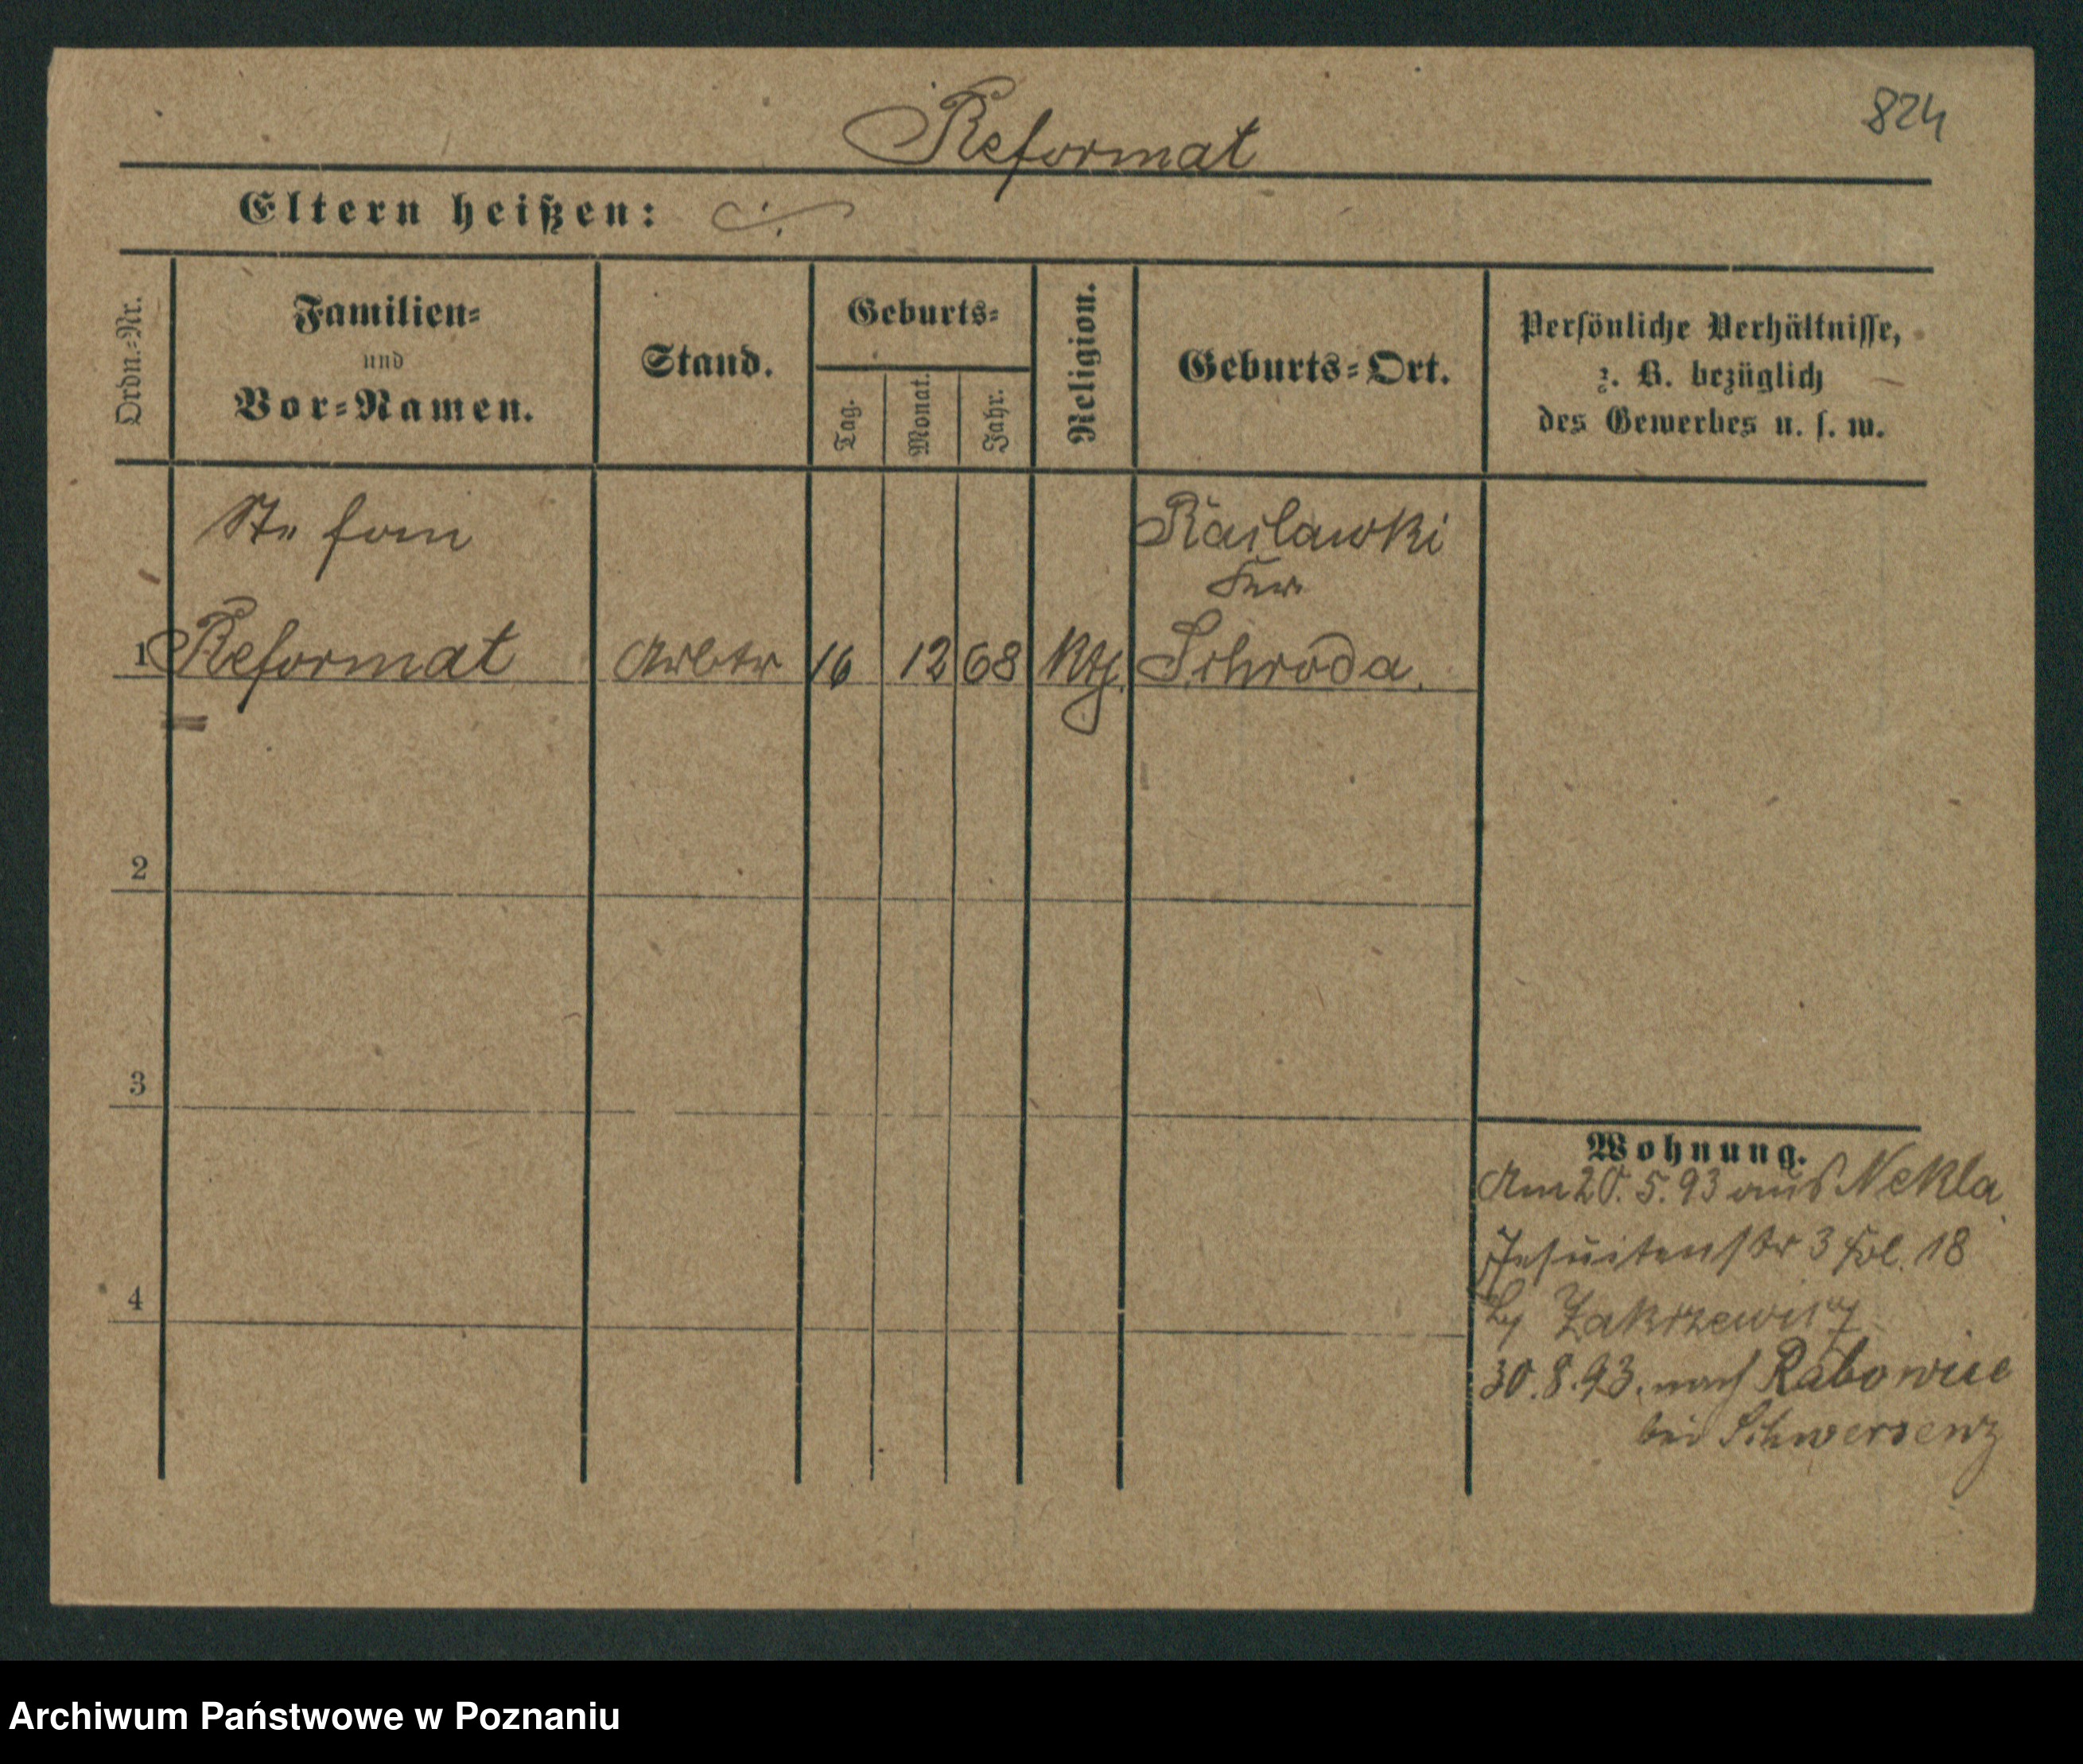 824
Reformat
Eltern heißen: ./.
Ordn.-Nr.
Familien-
und
Vor-Namen.
Stand.
Geburts-
Tag.
Monat.
Jahr.
Religion.
Geburts-Ort.
Persönliche Verhältnisse,
z. B. bezüglich
des Gewerbes u. s. w.
Stefan
Raslawki
1 Reformat Arbtr 16 12 68 Kth. Schroda.
2
3
4
Wohnung.
Am 20. 5. 93 aus Nekla
Jesuitenstr 3 fol. 18
by Zakrzewicz
30. 8. 93. nach Rabowice
bei Schwersenz
Archiwum Państwowe w Poznaniu